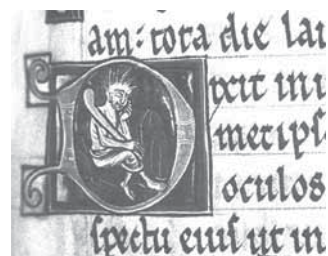 am: tota die lau
Dixit ini
metips
oculos
spectu eius ut in